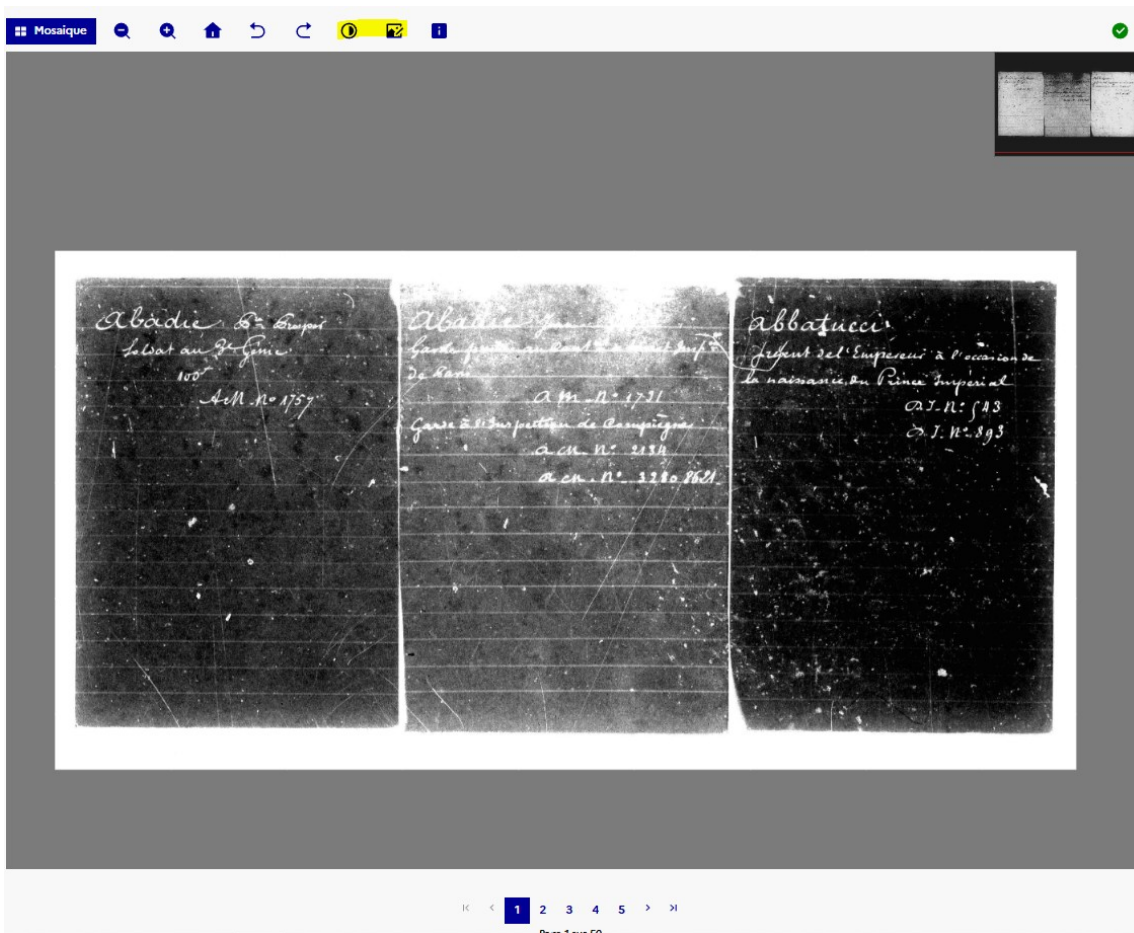 Mosaïque
i
Abadie
Soldat au 3e Génie
100f
AM. No 1757
Abadie
de Paris
AM. No 1721
Garde à l'Inspection de Compiègne
AM No 2134
AM. No 3280.8621
Abbatucci
Argent de l'Empereur à l'occasion de
la naissance du Prince Impérial
D.J. No 543
D.J. No 893
1 2 3 4 5